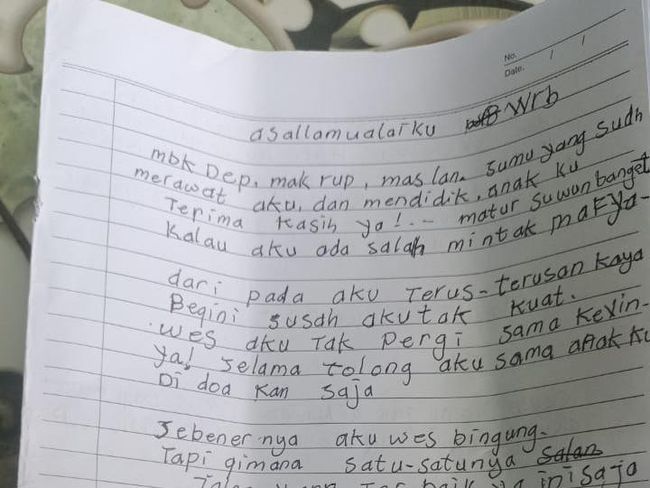 No.
Date. / /
asallamualaiku Wrb
mbk Dep, mak rup, mas lan. sumu yang sudh
merawat aku, dan mendidik, anak ku
Terima kasih ya!.-- matur suwun banget
Kalau aku ada salah mintak maFya-
dari pada aku Terus-terusan kaya
Begini susah aku tak kuat.
wes aku Tak pergi sama Kevin-
ya! selama tolong aku sama anak ku
Di doa kan saja
Sebener nya aku wes bingung.
Tapi gimana satu-satunya salan
ini saja